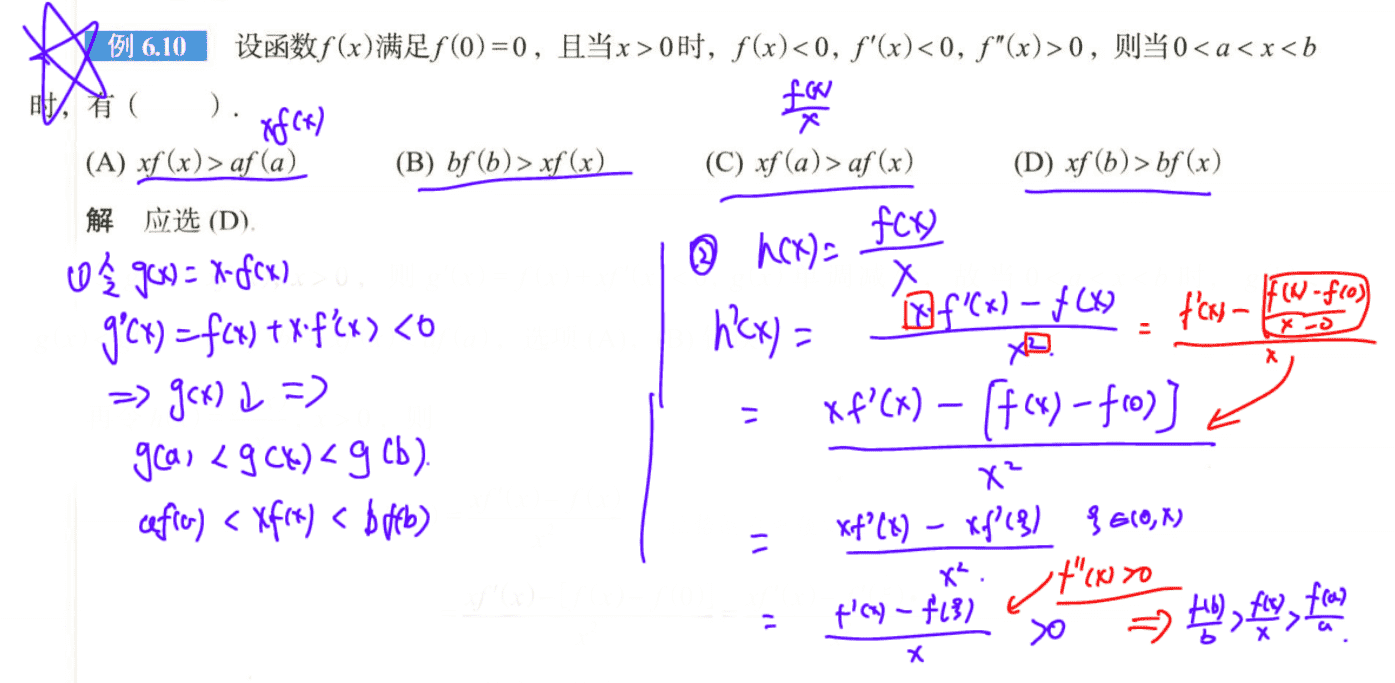 例 6.10 设函数f(x)满足f(0)=0，且当x>0时，f(x)<0, f′(x)<0, f″(x)>0，则当0<a<x<b
时，有（ ）.
xf(x)
f(x)/x
(A) xf(x)>af(a) (B) bf(b)>xf(x) (C) xf(a)>af(x) (D) xf(b)>bf(x)
解 应选 (D).
(1) 令 g(x)= x·f(x)
g'(x) = f(x) + x·f'(x) < 0
=> g(x) ↓ =>
g(a) < g(x) < g(b).
af(a) < xf(x) < bf(b)
② h(x)= f(x)/x
h'(x) = (x·f'(x) - f(x))/x². = (f'(x) - (f(x)-f(0))/(x-0))/x
= (xf'(x) - [f(x) - f(0)])/x²
= (xf'(x) - xf'(ξ))/x². ξ∈(0,x)
= (f'(x) - f'(ξ))/x >0 f''(x)>0 => f(b)/b > f(x)/x > f(a)/a.